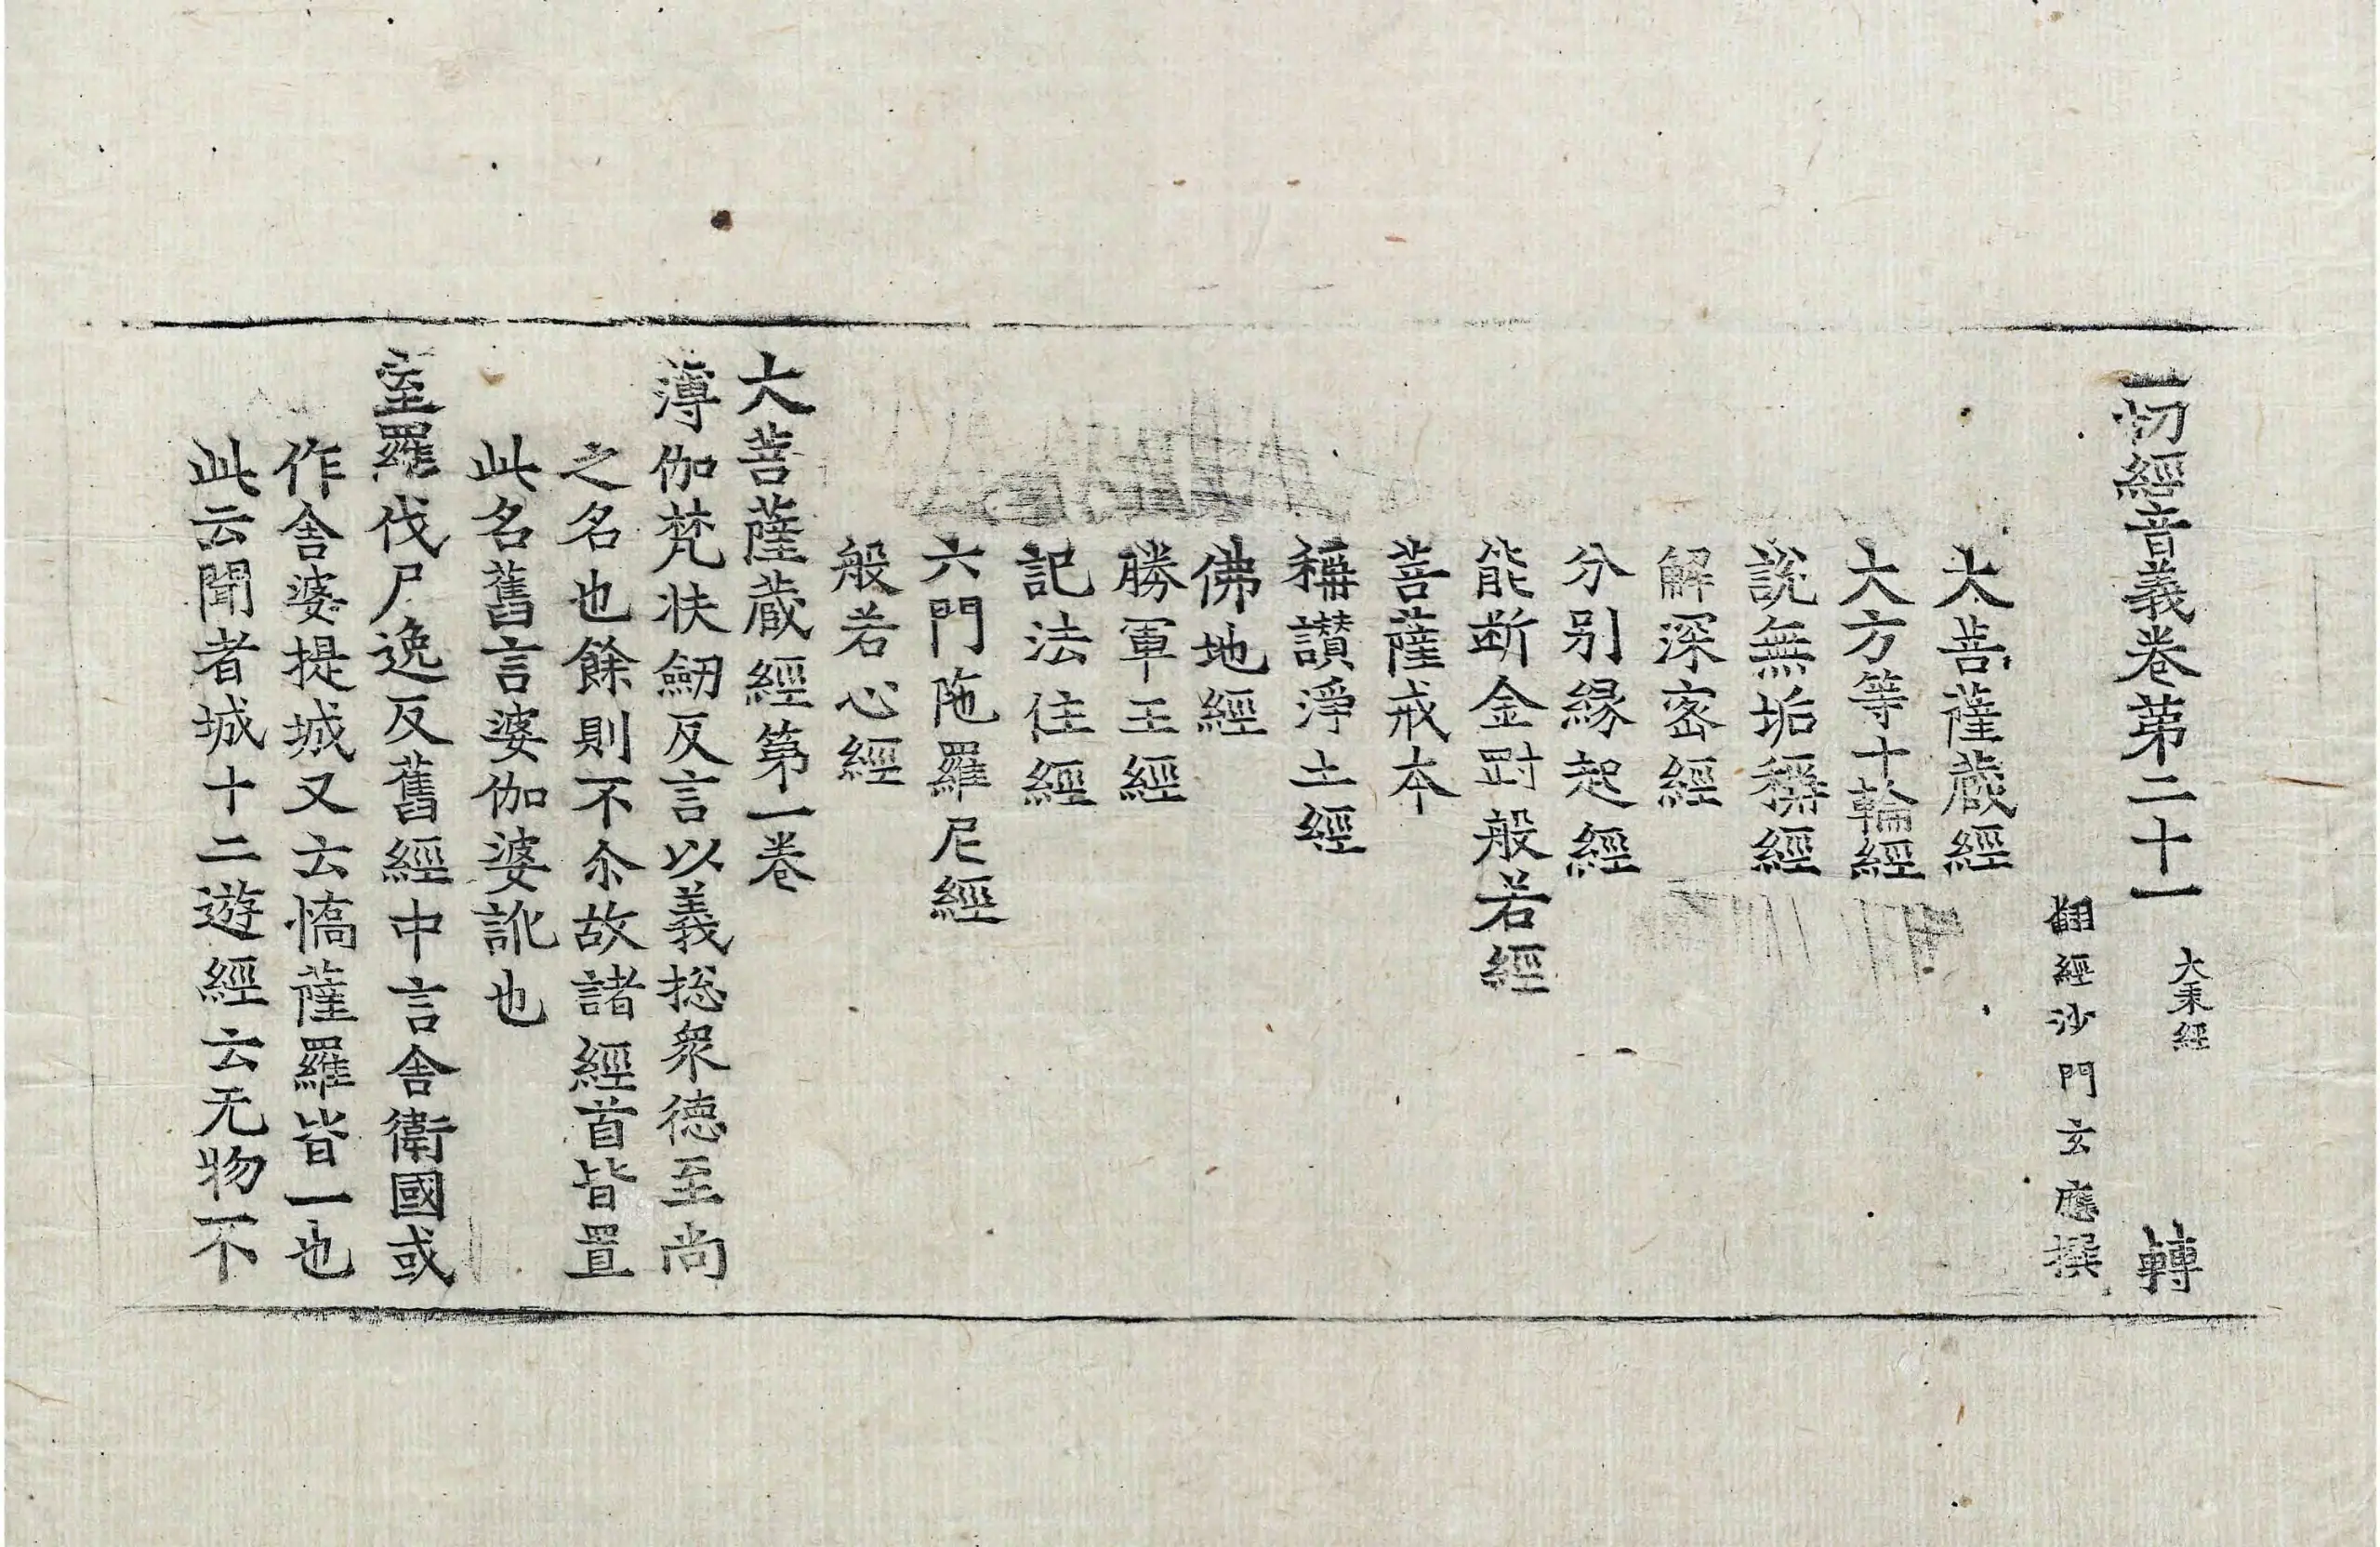 一切經音義卷第二十一 大乘經 轉
翻經沙門玄應撰
大菩薩蔵經
大方等十輪經
說無垢稱經
解深密經
分別緣起經
能斷金剛般若經
菩薩戒本
稱讚淨土經
佛地經
勝軍王經
記法住經
六門陁羅尼經
般若心經
大菩薩蔵經第一卷
薄伽梵扶劒反言以義捴衆德至尚
之名也餘則不尒故諸經首皆置
此名舊言婆伽婆訛也
室羅伐尸逸反舊經中言舍衛國或
作舍婆提城又云憍薩羅皆一也
此云聞者城十二遊經云无物不